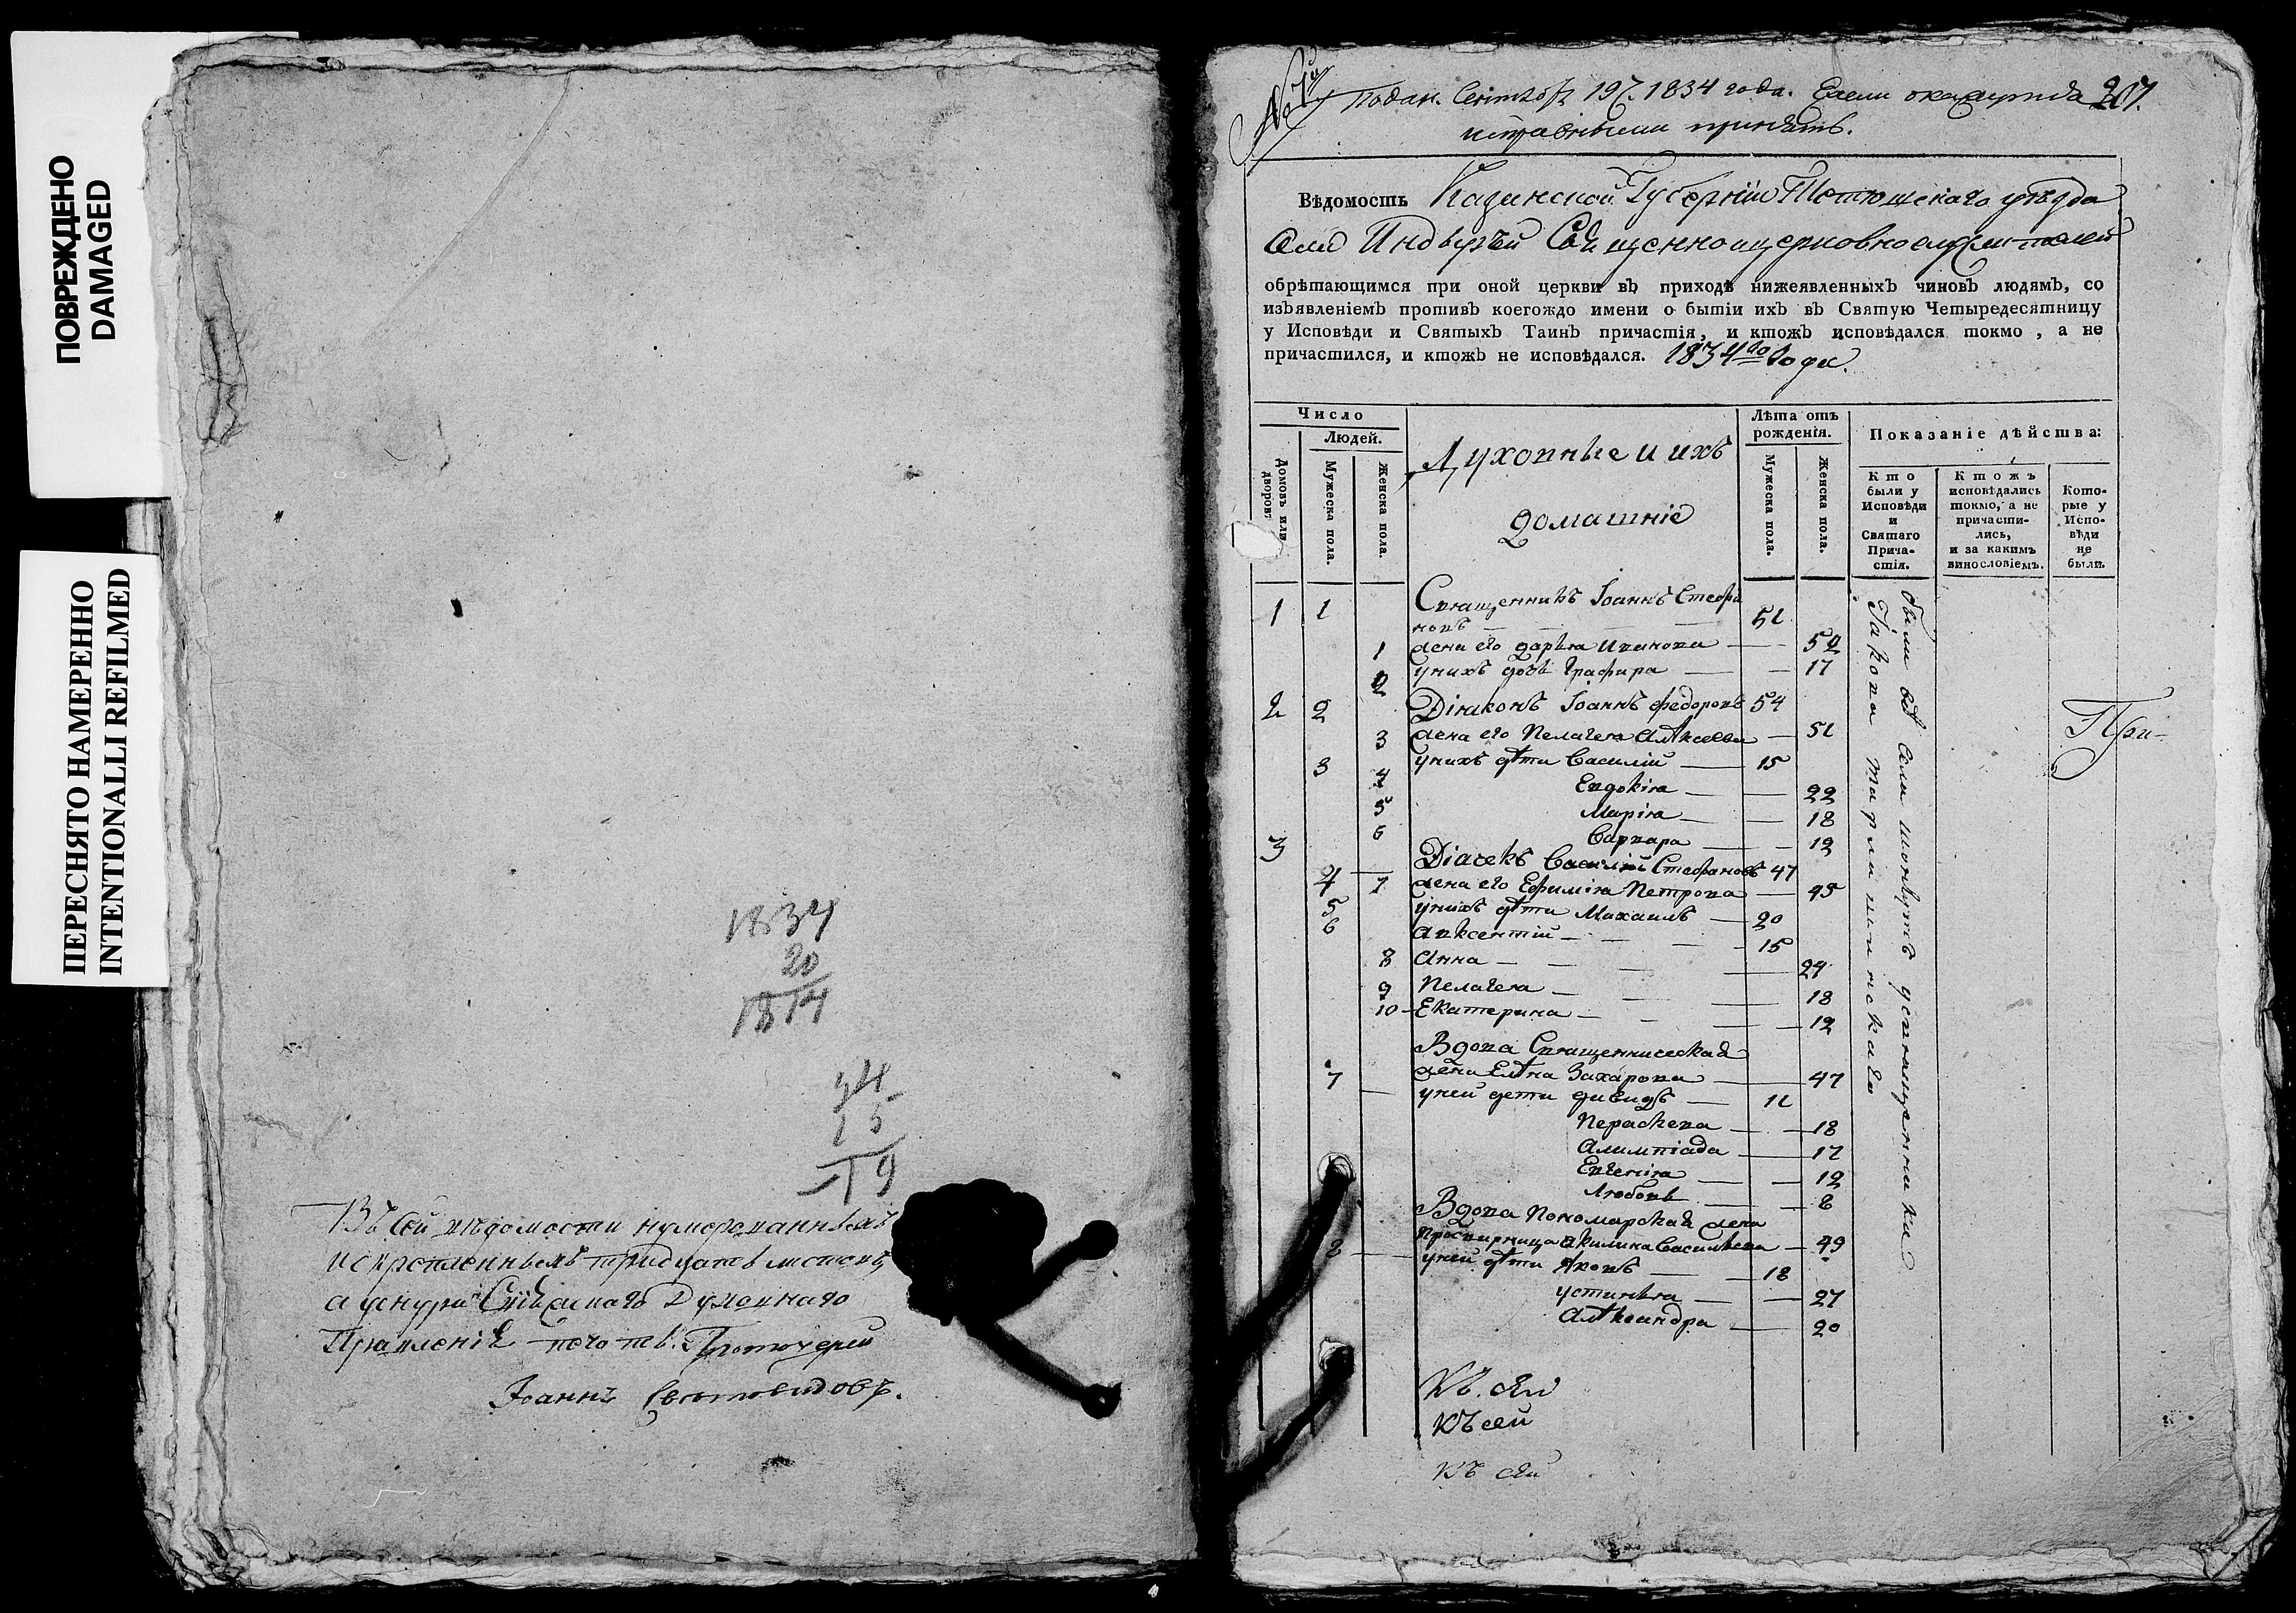 ПОВРЕЖДЕНО
DAMAGED
ПЕРЕСНЯТО НАМЕРЕННО
INTENTIONALLI REFILMED
1834
20
1814
34
15
19
Въ сей вѣдомости нумерованныхъ
и скрепленныхъ тридцать листовъ,
а у шнура Свіяжскаго Духовнаго
Правленія печать. Протоіерей
Іоаннъ Световидовъ.
Подан. Сентября 19. 1834 года. 207.
принять.
Вѣдомость Казанской Губерніи Тетюшскаго уѣзда
Села Индырчи Священноцерковнослужителей
обрѣтающимся при оной церкви въ приходѣ нижеявленныхъ чиновъ людямъ, со
изъявленіемъ противъ коегождо имени о бытіи ихъ въ Святую Четыредесятницу
у Исповѣди и Святыхъ Таинъ причастія, и ктожъ исповѣдался токмо, а не
причастился, и ктожъ не исповѣдался. 1834го года.
Число
Людей.
Домовъ или дворовъ
Мужеска пола.
Женска пола.
Духовные и ихъ
домашніе
Лѣта отъ рожденія.
Мужеска пола.
Женска пола.
Показаніе дѣйства:
Кто были у Исповѣди и Святаго Причастія.
Ктожъ исповѣдались токмо, а не причастились, и за какимъ винословіемъ.
Которые у Исповѣди не были.
1 1 Священникъ Іоаннъ Стефановъ 51
1 жена его Дарья Иванова 52
2 у нихъ дочь Глафира 17
2 2 Діаконъ Іоаннъ Федоровъ 54
3 жена его Пелагея Алѣксеева 51
3 у нихъ дѣти Василій 15
4 Евдокія 22
5 Марія 18
6 Варвара 12
3 Діачекъ Василій Стефановъ 47
4 7 жена его Ефимія Петрова 45
5 у нихъ дѣти Михаилъ 20
6 Авксентій 15
8 Анна 24
9 Пелагея 18
10 Екатерина 12
Вдова Священническая
жена Елѣна Захарова 47
7 у ней дети Давидъ 11
Парасковья 18
Алимпіада 17
Евгенія 12
Любовь 8
Вдова пономарская жена
просвирница Акилина Васильева 49
8 у ней дѣти Яковъ 18
Устинья 27
Алѣксандра 20
были въ селе у священника
Іакова
При-
Къ сей
Къ сей
Къ сей